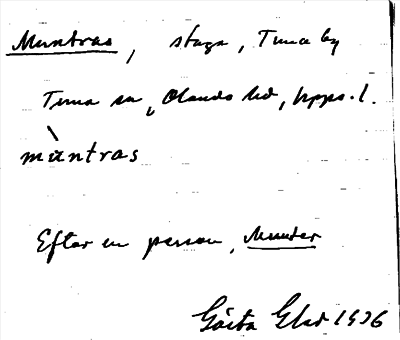 Muntras, stuga, Tuna by
Tuna sn, Olands hd, Upps. l.
mùntras
Efter en person, Munter
Gösta Glad 1936